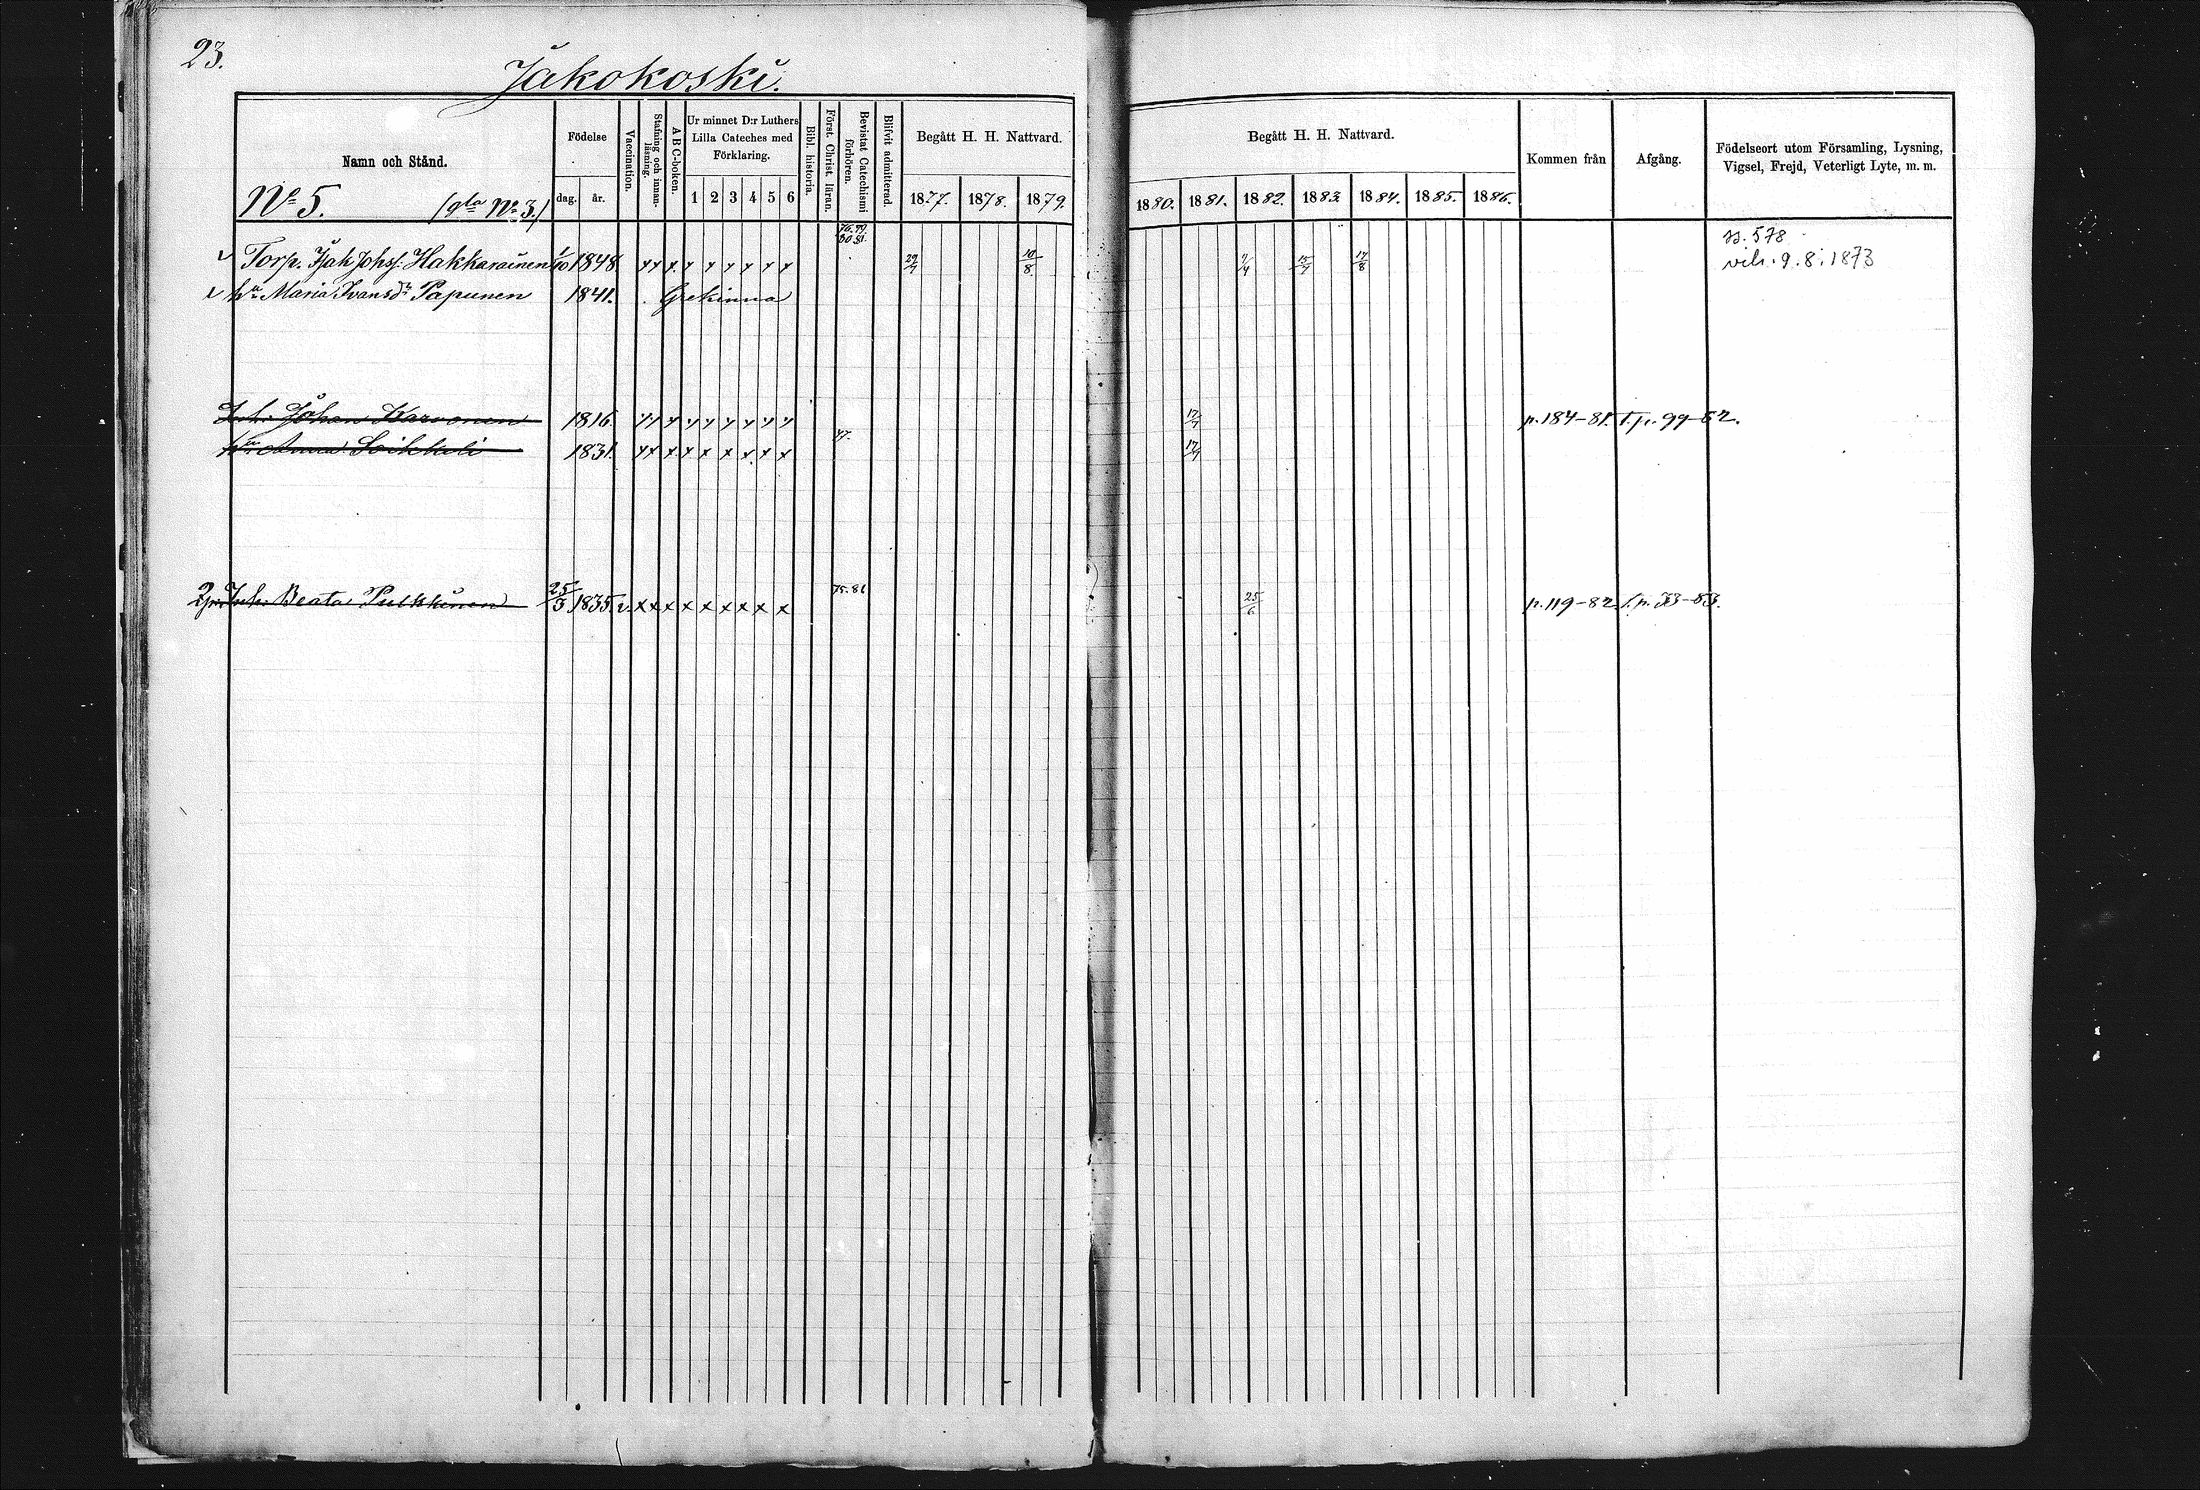 23.
Jakokoski.
Namn och Stånd.
Födelse
dag. år.
Vaccination.
Stafning och innan-läsning.
A B C-boken.
Ur minnet D:r Luthers Lilla Cateches med Förklaring.
1 2 3 4 5 6
Bibl. historia.
Först. Christ. läran.
Bevistat Catechismi förhören.
Blifvit admitterad.
Begått H. H. Nattvard.
1877. 1878. 1879.
Begått H. H. Nattvard.
1880. 1881. 1882. 1883. 1884. 1885. 1886.
Kommen från
Afgång.
Födelseort utom Församling, Lysning,
Vigsel, Frejd, Veterligt Lyte, m. m.
No 5. (gla No 3.)
Torp. Isak Johss. Hakkarainen 1/10 1848. 29/7 10/8 15/7 17/8 s. 578
vih. 9.8.1873
hu Maria Ivansdr Papunen 1841. Grekinna
Inh. Johan Karvonen 1816. 17/7 p. 184-81. t. p. 99-82.
hu Anna Soikkeli 1831. 17/7
Inh. Beata Pulkkinen 25/3 1835. v. 75.81 25/6 p. 119-82. t. p. 33-83.